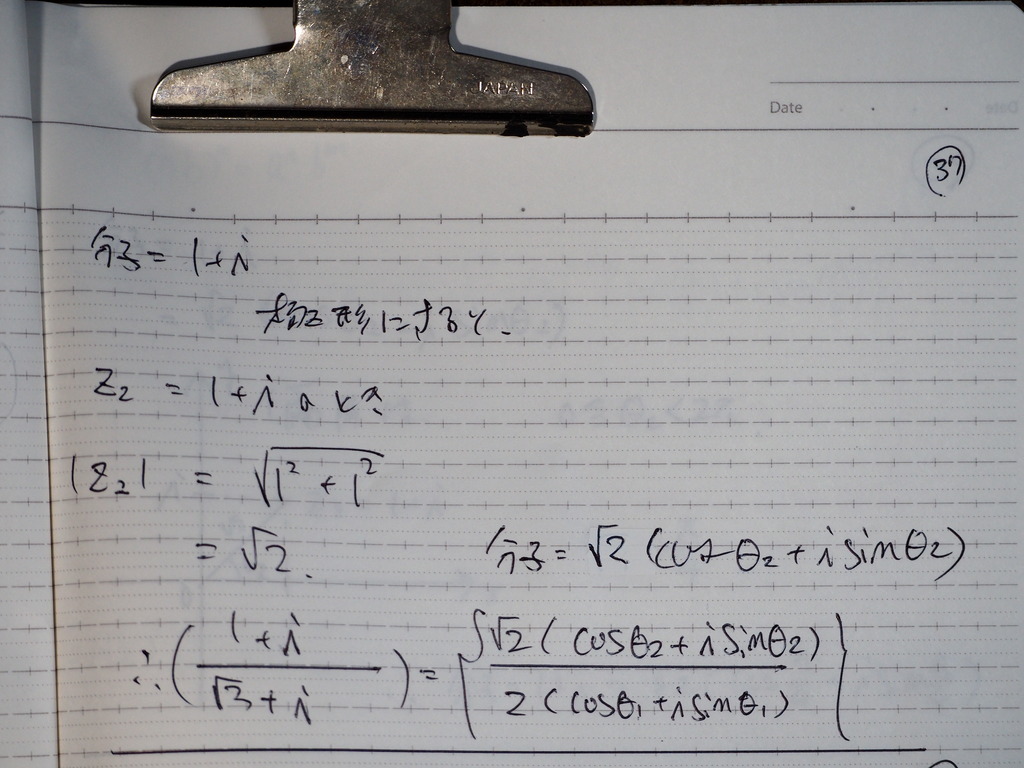 JAPAN
Date
37
分子 = 1+i
極形にすると.
Z₂ = 1+i のとき
|Z₂| = √(1² + 1²)
= √2.
分子 = √2 (cos θ₂ + i sin θ₂)
∴ ( (1+i) / (√3+i) ) = { √2 ( cosθ₂ + i sinθ₂) / 2 ( cosθ₁ + i sinθ₁) }